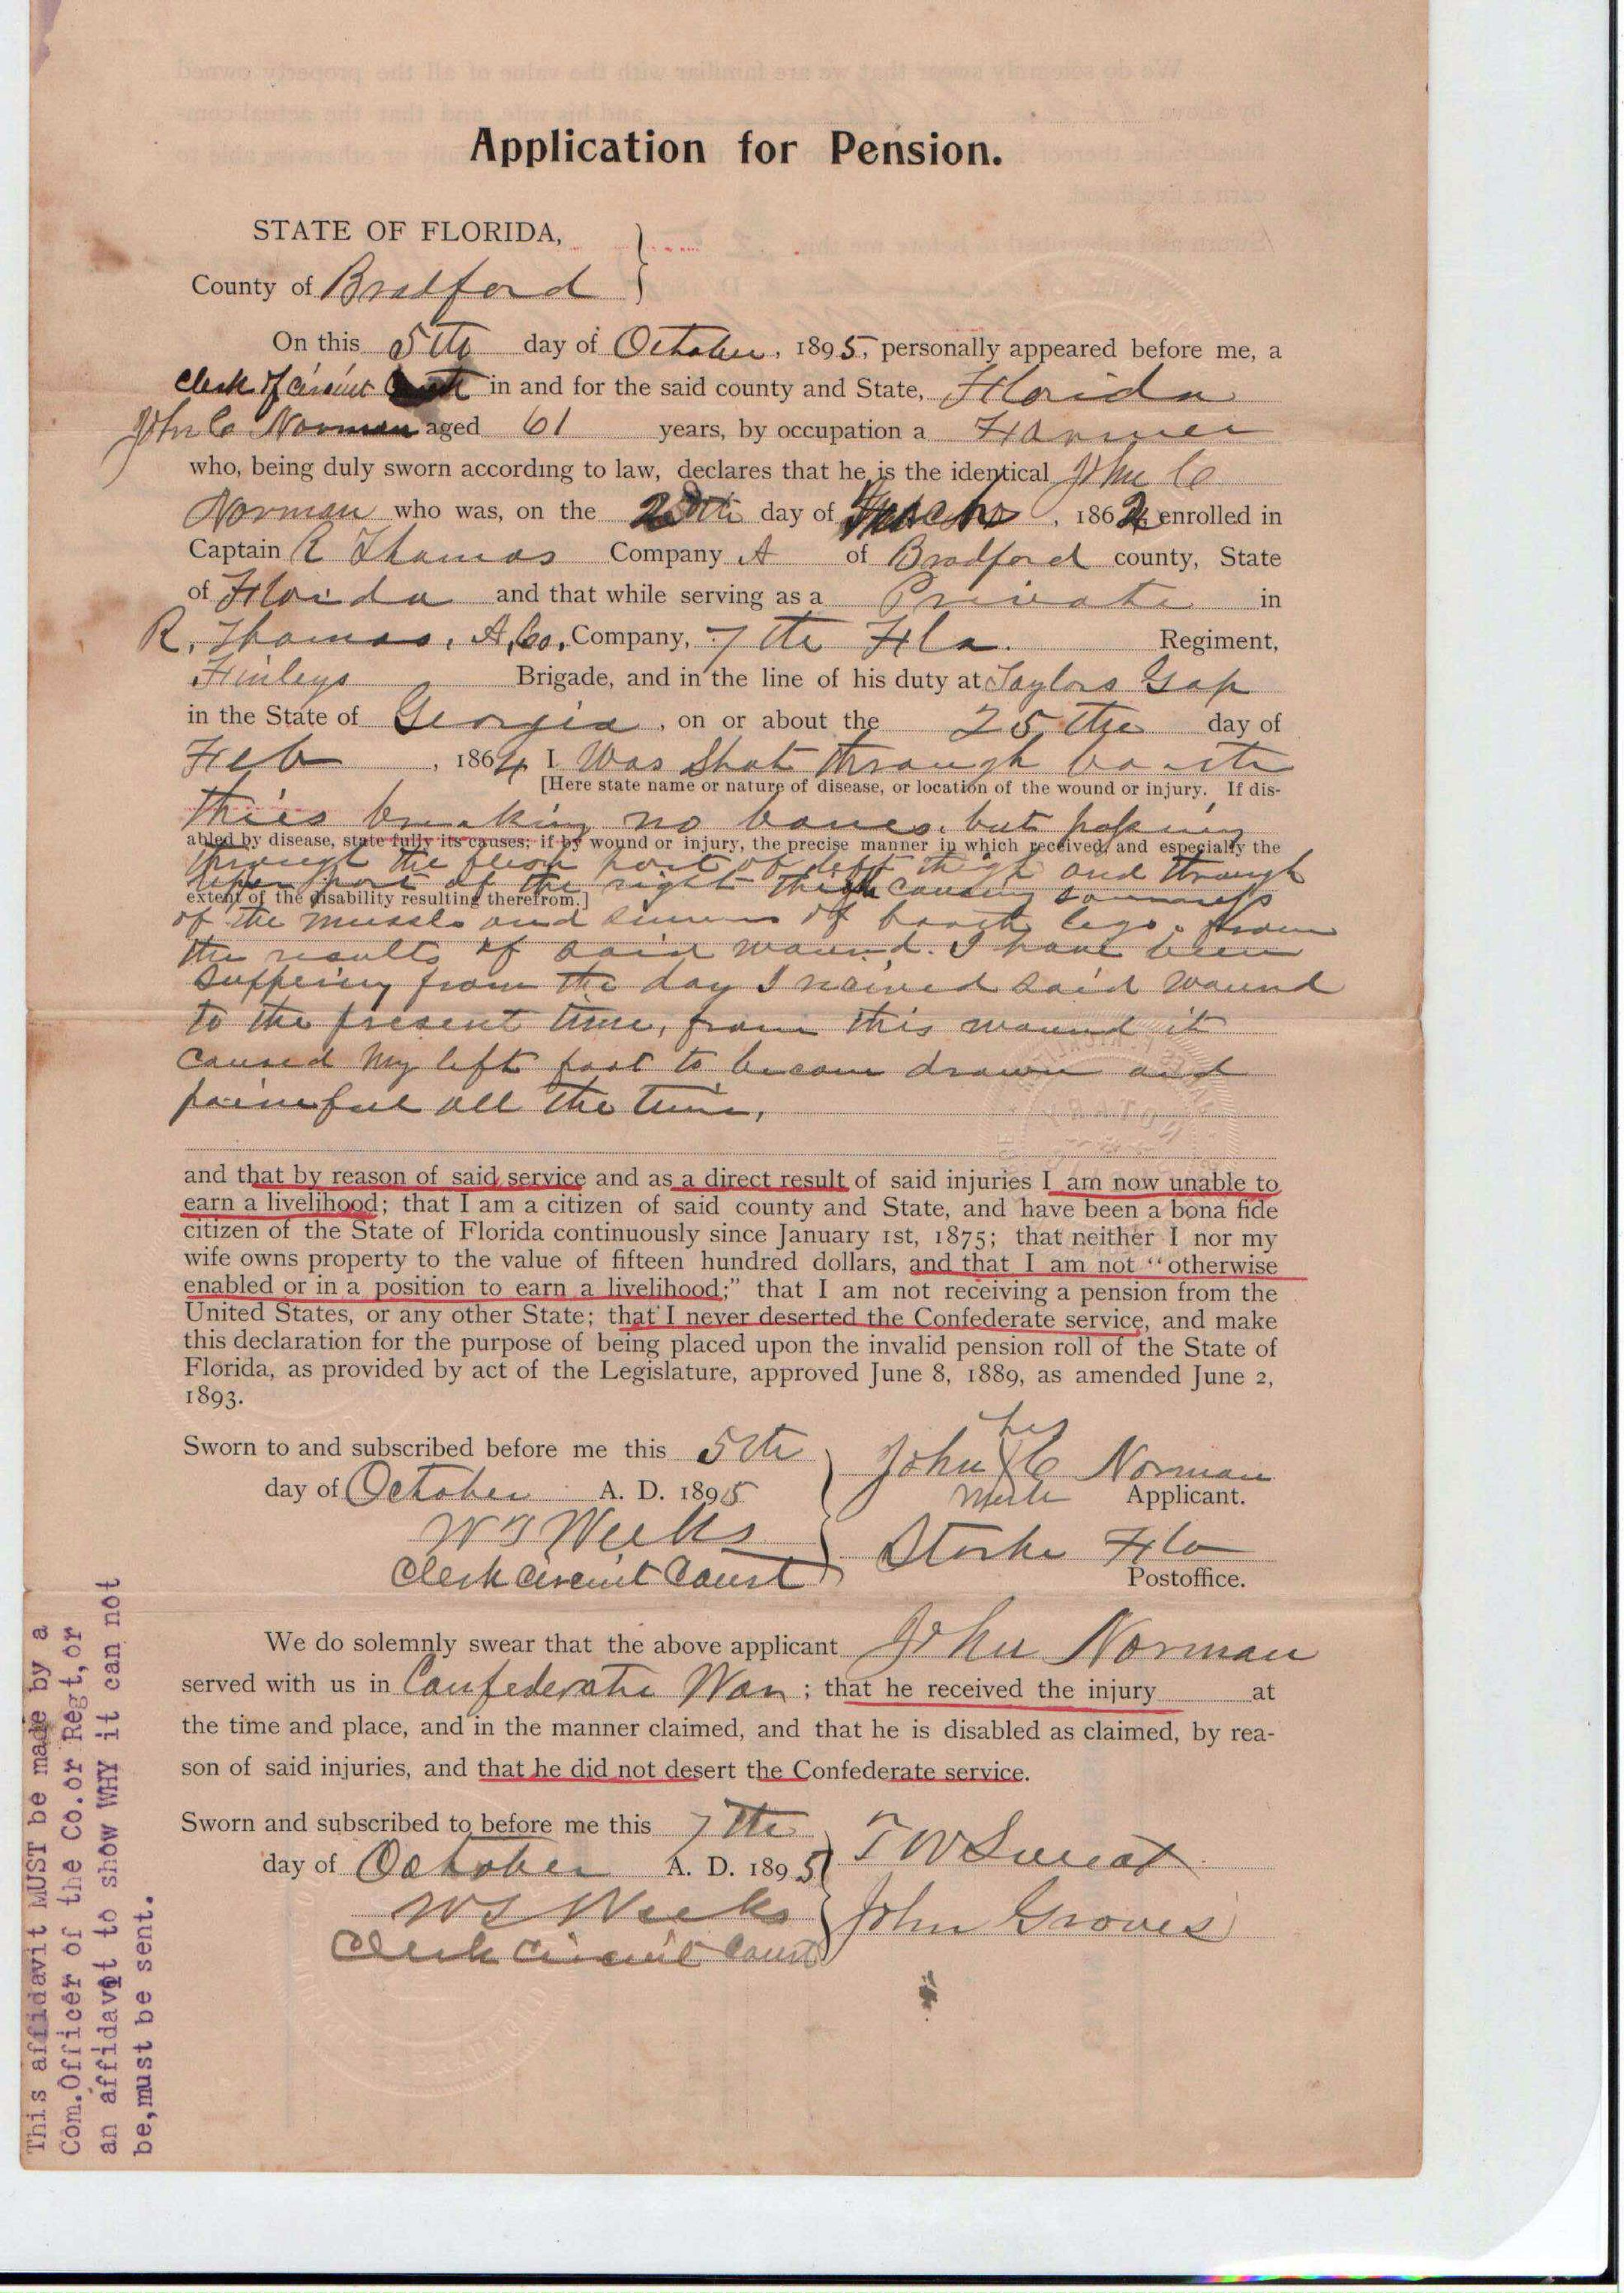 Application for Pension.
STATE OF FLORIDA,
County of Bradford
On this 5th day of October, 1895, personally appeared before me, a
Clerk of Circuit Court in and for the said county and State, Florida
John C Norman aged 61 years, by occupation a Farmer
who, being duly sworn according to law, declares that he is the identical John C
Norman who was, on the day of March, 1862, enrolled in
Captain R Thomas Company A of Bradford county, State
of Florida and that while serving as a Private in
R. Thomas. A, Co. Company, 7th Fla. Regiment,
Finleys Brigade, and in the line of his duty at Taylors Gap
in the State of Georgia, on or about the 25the day of
Feb, 1864 I Was Shot through booth
[Here state name or nature of disease, or location of the wound or injury. If dis-
thies breaking no bones. but passing
abled by disease, state fully its causes; if by wound or injury, the precise manner in which received, and especially the
through the flesh part of left thigh and through
uper part of the right thigh causing soarness
extent of the disability resulting therefrom.]
of the mussls and of booth legs. from
the results of said wound. I have been
suffering from the day I received said wound
to the present time, from this wound it
caused my left foot to become drawn and
painefull all the time,
and that by reason of said service and as a direct result of said injuries I am now unable to
earn a livelihood; that I am a citizen of said county and State, and have been a bona fide
citizen of the State of Florida continuously since January 1st, 1875; that neither I nor my
wife owns property to the value of fifteen hundred dollars, and that I am not "otherwise
enabled or in a position to earn a livelihood;" that I am not receiving a pension from the
United States, or any other State; that I never deserted the Confederate service, and make
this declaration for the purpose of being placed upon the invalid pension roll of the State of
Florida, as provided by act of the Legislature, approved June 8, 1889, as amended June 2,
1893.
Sworn to and subscribed before me this 5th
day of October A. D. 1895
W S Weeks
Clerk Circuit Court
his
John X C Norman
mark Applicant.
Starke Fla
Postoffice.
We do solemnly swear that the above applicant John Norman
served with us in Confederate War; that he received the injury at
the time and place, and in the manner claimed, and that he is disabled as claimed, by rea-
son of said injuries, and that he did not desert the Confederate service.
Sworn and subscribed to before me this 7th
day of October A. D. 1895
W S Weeks
Clerk Circuit Court
T W Sweat
John Groves
This affidavit MUST be made by a
Com.Officer of the Co.or Regt,or
an affidavit to show WHY it can not
be,must be sent.